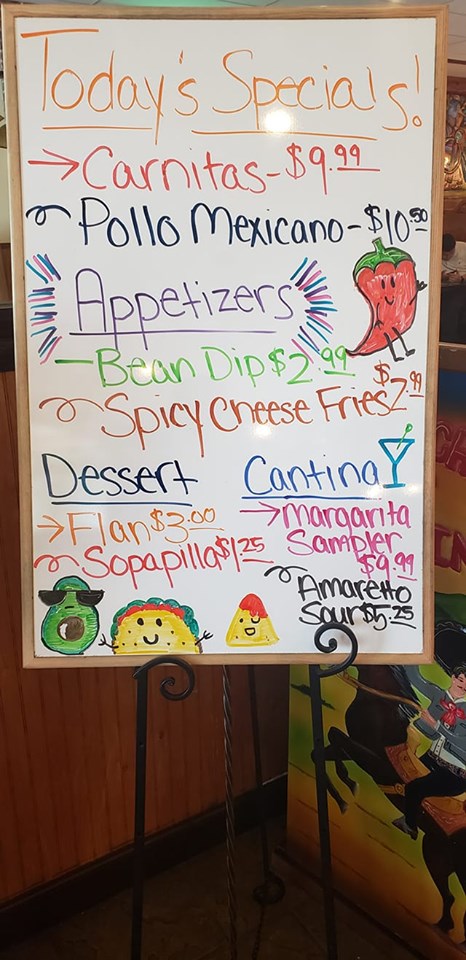 Today's Specials!
→ Carnitas - $9.99
Pollo Mexicano - $10.50
Appetizers
- Bean Dip $2.99
Spicy Cheese Fries $7.99
Dessert
→ Flan $3.00
Sopapilla $1.25
Cantina
→ Margarita
Sampler
$9.99
Amaretto
Sour $5.25